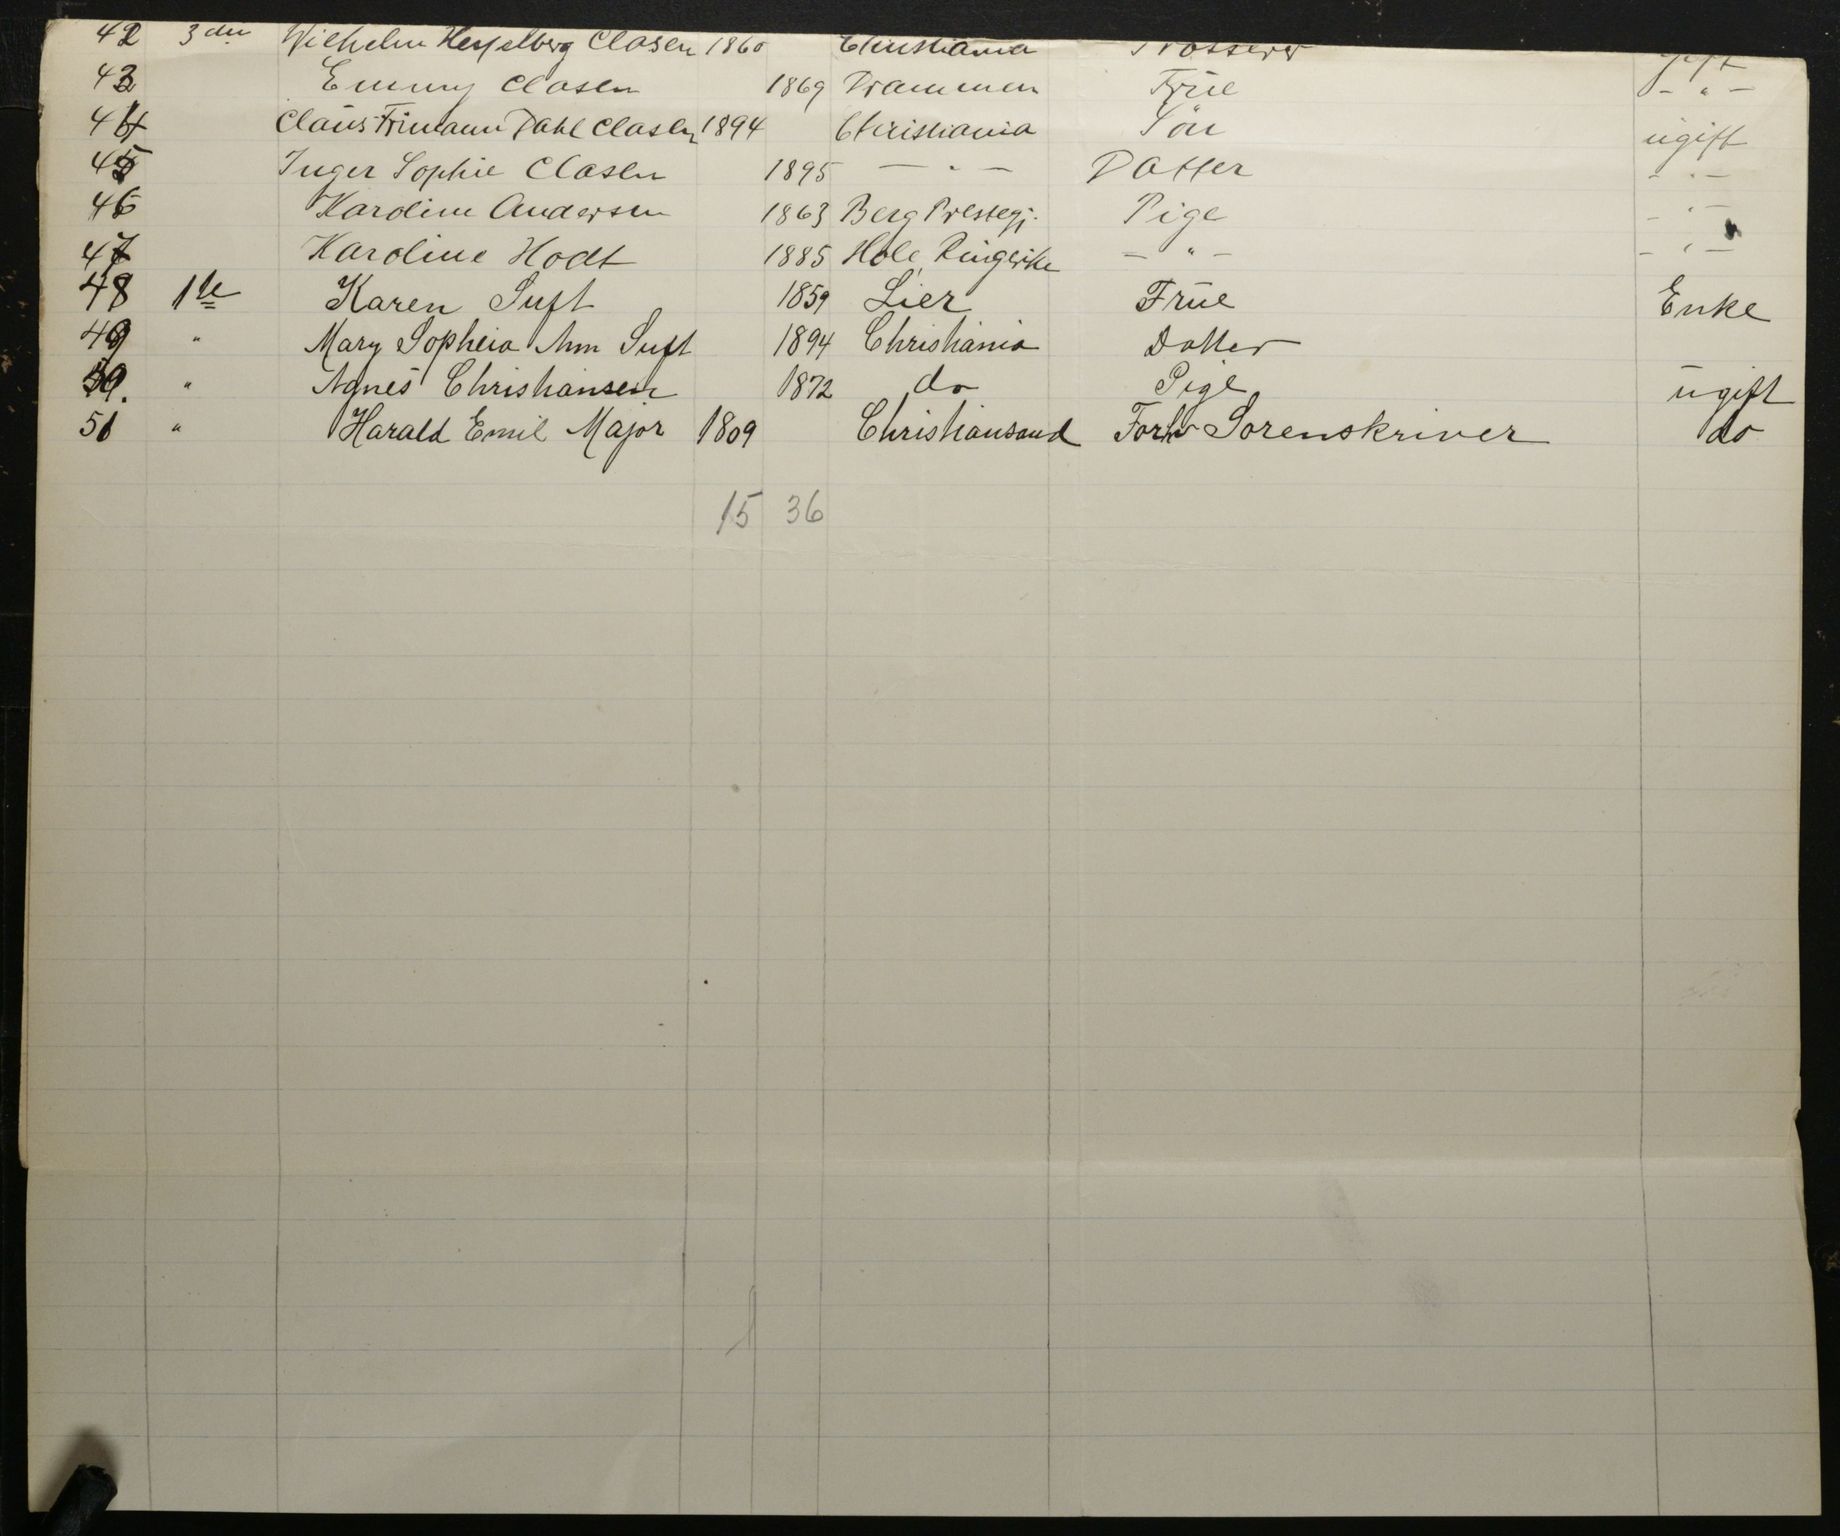 42 3die Wilhelm Hesselberg Clasen 1860 Christiania gift
43 Emmy Clasen 1869 Drammen Frue - " -
44 Claus Frimann Dahl Clasen 1894 Christiania Søn ugift
45 Inger Sophie Clasen 1895 - " - Datter - " -
46 Karoline Andersen 1863 Berg Prestegj. Pige - " -
47 Karoline Hodt 1885 Hole Ringerike - " - - " -
48 1ste Karen Suft 1859 Lier Frue Enke
49 " Mary Sopheia Suft 1894 Christiania Datter
50. " Agnes Christiansen 1872 do Pige ugift
51 " Harald Emil Major 1809 Christiansand Forhv Sorenskriver do
15 36